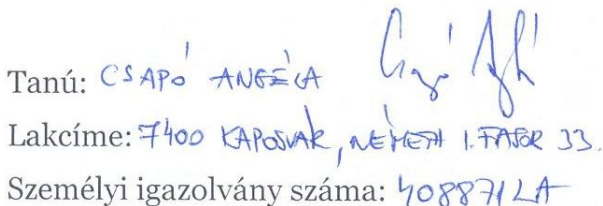 Tanú: CSAPÓ ANGÉLA
Lakcíme: 7400 KAPOSVÁR, NÉMETH I. FASOR 33.
Személyi igazolvány száma: 408871LA